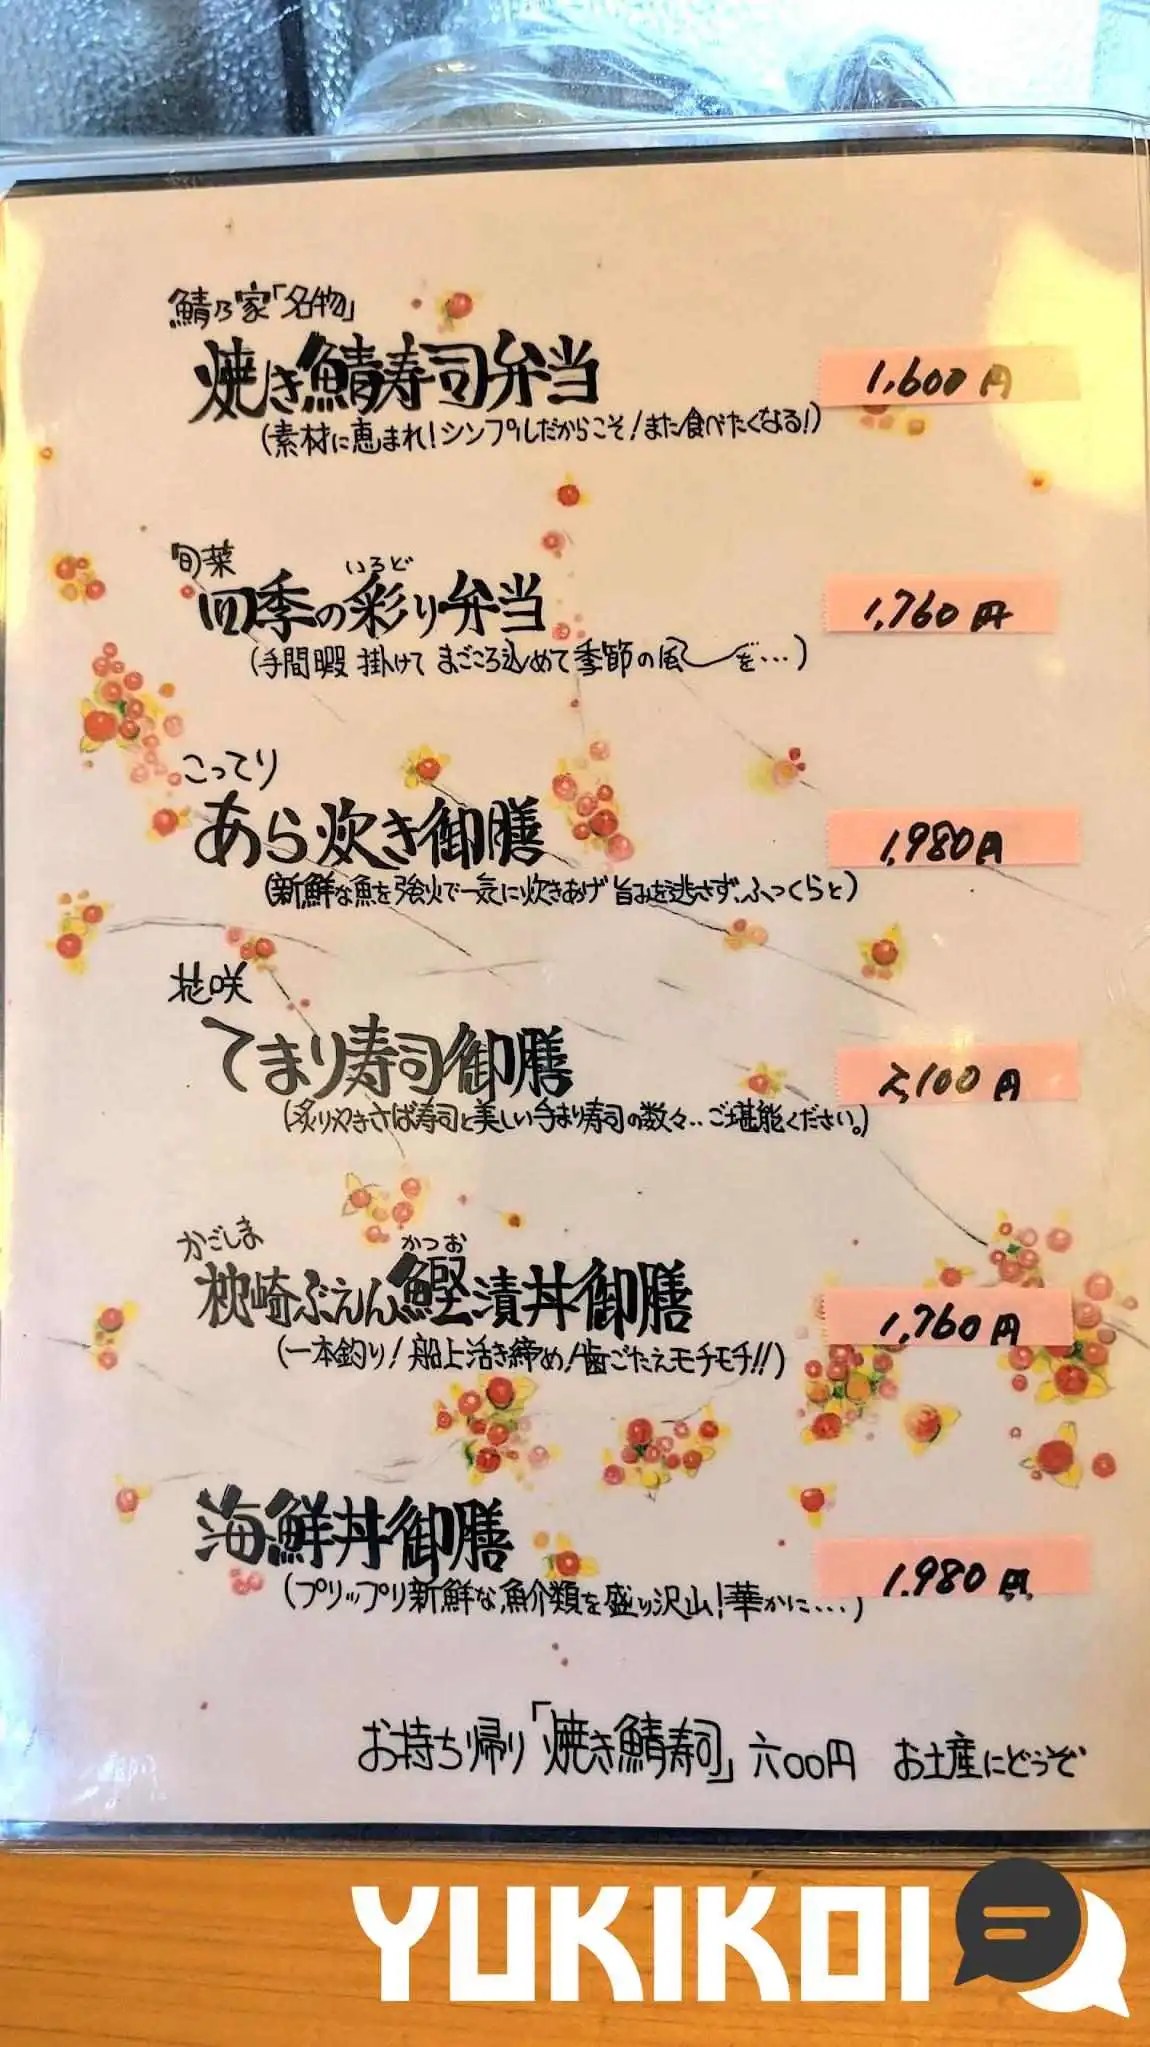 鯖乃家「名物」
焼き鯖寿司弁当 1,600円
(素材に恵まれ!シンプルだからこそ!また食べたくなる!)
旬菜 いろど
四季の彩り弁当 1,760円
(手間暇掛けてまごころ込めて季節の風〜を…)
こってり
あら炊き御膳 1,980円
(新鮮な魚を強火で一気に炊きあげ旨みを逃さず、ふっくらと)
花咲
てまり寿司御膳 2,100円
(炙りやきさば寿司と美しい手まり寿司の数々‥ご堪能ください。)
かごしま かつお
枕崎ぶえん鰹漬丼御膳 1,760円
(一本釣り!船上活き締め!歯ごたえモチモチ!!)
海鮮丼御膳 1,980円
(プリップリ新鮮な魚介類を盛り沢山!華かに…)
お持ち帰り「焼き鯖寿司」六〇〇円 お土産にどうぞ
YUKIKOI